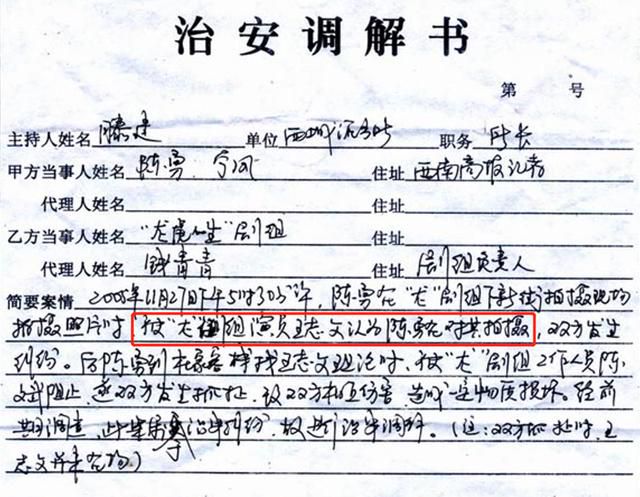 治安调解书
第 号
主持人姓名 滕建 单位 西城派出所 职务 所长
甲方当事人姓名 陈勇、 住址 西南商报记者
代理人姓名 住址
乙方当事人姓名 "龙虎人生"剧组 住址
代理人姓名 钱青青 住址 剧组负责人
简要案情 2005年11月27日下午5时30分许,陈勇在"龙"剧组下新街拍摄现场
拍摄照片时 被"龙"剧组演员王志文认为陈勇在对其拍摄,双方发生
纠纷。后陈勇到 找王志文理论时,被"龙"剧组工作人员陈
文武阻止,遂双方发生抓扯,致双方 伤害,造成一定物质损坏。经
调查,此案属于治安纠纷,故进行治安调解。(注:双方抓扯时,王
志文并未在场)